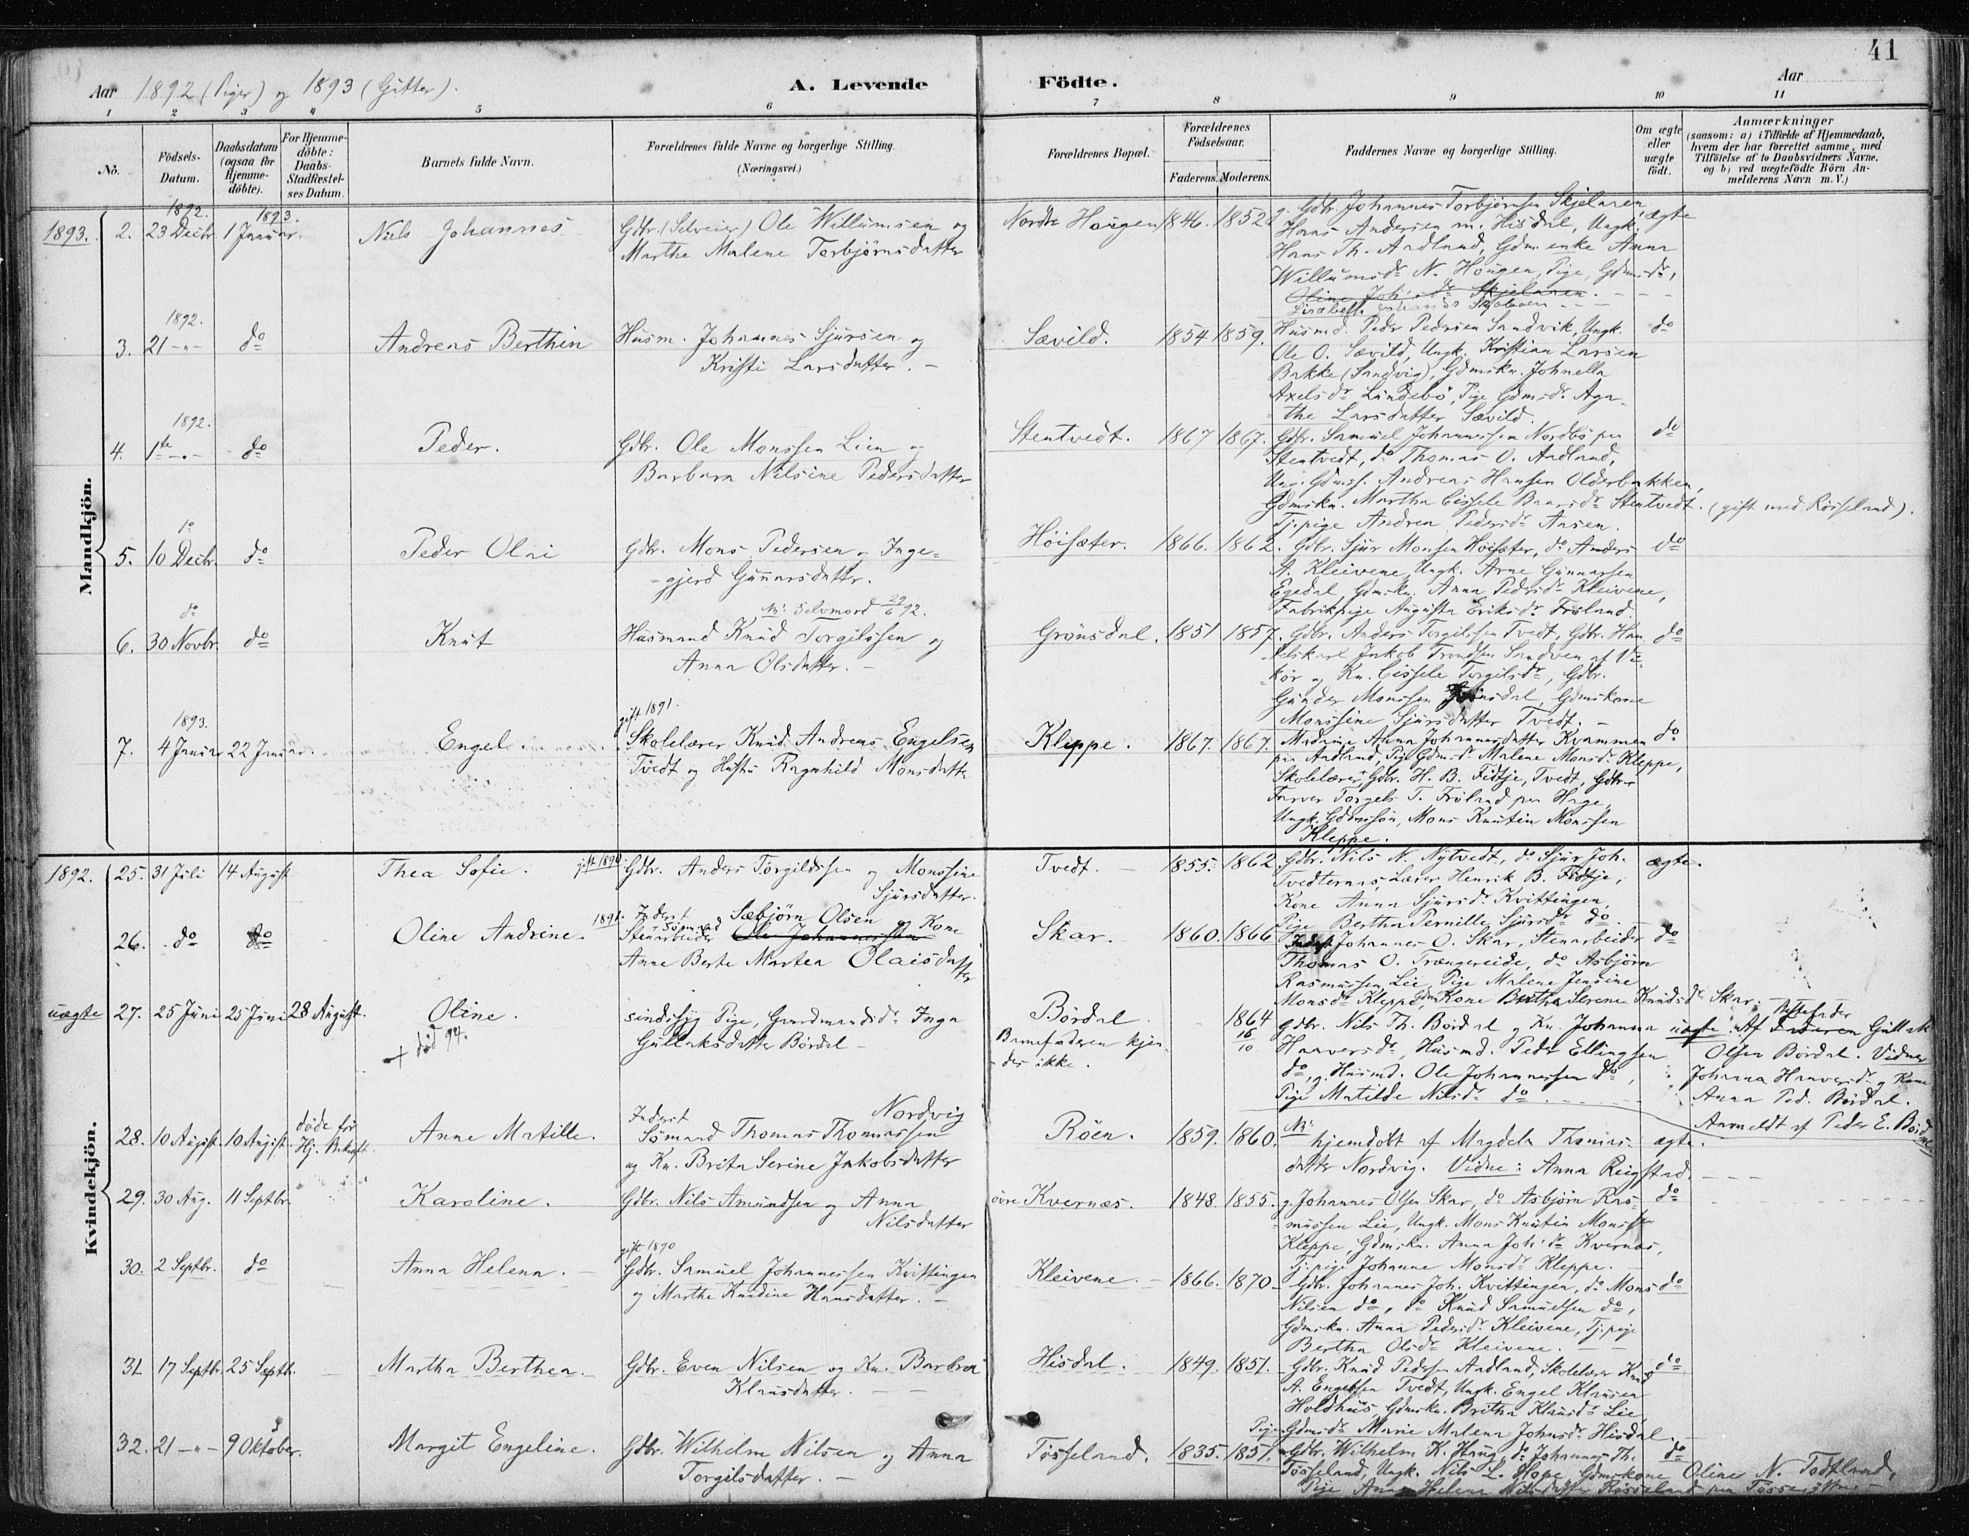 41
Aar 1892 (Piger) og 1893 (Gutter).
A. Levende Födte.
Aar
1 2 3 4 5 6 7 8 9 10 11
No.
Födsels-Datum.
Daabsdatum (ogsaa for Hjemme-döbte).
For Hjemme-döbte: Daabs-Stadfestel-ses Datum.
Barnets fulde Navn.
Forældrenes fulde Navne og borgerlige Stilling. (Næringsvei.)
Forældrenes Bopæl.
Forældrenes Födselsaar.
Faderens. Moderens.
Faddernes Navne og borgerlige Stilling.
Om ægte eller uægte födt.
Anmærkninger
(saasom: a) i Tilfælde af Hjemmedaab, hvem der har forrettet samme, med Tilföielse af to Daabsvidners Navne, og b) ved uægtefödte Börn An-melderens Navn m. V.)
Mandkjön.
1893. 2. 1892. 23 Decbr. 1893. 1 Januar.
Niels Johannes
Gdbr. (Selveier) Ole Willumsen og
Marthe Malene Torbjørnsdatter
Nordre Hougen 1846. 1852
Gdbr. Johannes Torbjørnsen Skjelaren, ægte
Hans Andersen m. Hisdal, Ungk.
Hans Th. Aadland, Gdm. enke Anna
Willumsdr N. Hougen, Pige, Gdmsdr,
Oline Joh's dr Skjelaren.
3. 1892. 21 -"- do
Andreas Berthin
Husm. Johannes Sjursen og
Kristi Larsdatter. -
Sævild. 1854 1859.
Husmd. Peder Pedersen Sandvik, Ungk. do
Ole O. Sævild, Ungk. Kristian Larsen
Bakke (Sandvig), Gdmskn. Johnella
Axelsdr Lundebö, Pige Gdmsdr Aga-
the Larsdatter Sævild.
4. 1892. 1te -"- do
Peder.
Gdbr. Ole Monssen Lien og
Barbara Nilsine Pedersdatter
Stentvedt. 1867 1867.
Gdbr. Samuel Johannessen Nordbö paa do
Stentvedt, do Thomas O. Aadland,
Ung. Gdms. Andreas Hansen Olderbakken,
Gdmskn. Martha Cissele Baarsdr Stentvedt. (gift med Røsseland).
Tj.pige Andrea Pedersdr Aasen.
5. do 10 Decbr. do
Peder Olai
Gdbr. Mons Pedersen og Inge-
-gjerd Gunnarsdatter.
Høisæter. 1866. 1862.
Gdbr. Sjur Monsen Høisæter, do Anders do
A. Kleivene, Ungk. Arne Gunnarsen
Egedal, Gdmskn. Anna Pedersdr Kleivene,
Fabrikpige Augusta Eriksdr Frøland
6. do 30 Novbr. do
Knut
NB! Selvmord 29/6 92.
Husmand Knud Torgilssen og
Anna Olsdatter. -
Grönsdal. 1851 1857.
Gdbr. Anders Torgilssen Tvedt, Gdbr. Han- do
delskarl Jakob Trondsen Sandven af Vi-
kør og Kn. Cissele Torgilsdr, Gdbr.
Gunder Monssen Grönsdal, Gdmskone
Monssine Sjursdatter Tvedt. -
7. 1893. 4 Januar 22 Januar.
Engel.
gift 1891.
Skolelærer Knud Andreas Engelsen
Tvedt og Hustru Ragnhild Monsdatter
Kleppe. 1867. 1867.
Madame Anna Johannesdatter Kvammen do
paa Aadland, Pige Gdmsdr Malene Monsdr Kleppe,
Skolelærer, Gdbr. H. B. Fidtje, Tvedt, Gdbr.
Farver Torgels T. Frøland paa Hage,
Ungk. Gdmssøn, Mons Knutin Monssen
Kleppe.
Kvindekjön.
1892. 25. 31 Juli 14 August
Thea Sofie.
gift 1890.
Gdbr. Anders Torgilssen og Monssine
Sjursdatter.
Tvedt. - 1855. 1862
Gdbr. Nils N. Nytvedt, do Sjur Joh. ægte.
Tvedternæs, Lærer Henrik B. Fidtje,
Kone Anna Sjursdr Kvittingen,
Pige Bertha Pernille Sjursdr do.
26. do do
Oline Andrine.
1891. Inderst Sømand Sæbjörn Olsen
Stenarbeider Ole Johannessen og Kone
Anne Berte Martea Olaisdatter
Skar. 1860. 1866
Inderst Johannes O. Skar, Stenarbeider do
Thomas O. Trængereide, do Asbjörn
Rasmussen Lie, Pige Malene Jensine
Monsdr Kleppe, Kone Bertha Serene Knudsdr Skar.
uægte 27. 25 Juni 25 Juni 28 August.
Oline.
+ död 94.
sindssyg Pige, Gaardmandsdr Inga
Gullaksdatter Bördal -
Bördal.
Barnefaderen kjen-
-des ikke.
1864 16/10
Gdbr. Nils Th. Bördal og Kn. Johanna uægte. Af Faderen Gullak
Haaversdr, Husmd. Peder Ellingsen
do, g. Husmd. Ole Johannessen do,
Pige Matilde Nilsdr do.
Olsen Bördal. Vidner
Johanna Haaversdr og Kone
Anna Ped. Bördal.
Anmeldt af Peder E. Bördal
28. 10 August. 10 August. döde för Hj. Bekræft.
Anne Matille.
Inderst Nordvig
Sømand Thomas Thomassen
og Kn. Brita Serine Jakobsdatter
Röen. 1859. 1860.
NB! hjemdöbt af Magdela Thomas- ægte.
datter Nordvig. Vidne: Anna Rugstad.
29. 30 Aug. 11 Septbr.
Karoline.
Gdbr. Nils Amundsen og Anna
Nilsdatter
övre Kvernæs. 1848. 1855.
g. Johannes Olsen Skar, do Asbjörn Ras- do
mussen Lie, Ungk. Mons Knutin Monssen
Kleppe, Gdmskn. Anna Joh's dr Kvernæs,
Tj.pige Johanne Monsdr Kleppe. -
30. 2 Septbr. do
Anna Helena. -
gift 1890
Gdbr. Samuel Johannessen Kvittingen
og Marthe Knudine Hansdatter. -
Kleivene. - 1866. 1870.
Gdbr. Johannes Joh. Kvittingen, do Mons do
Nilsen do, do Knud Samuelsen do,
Gdmskn. Anna Pedersdr Kleivene, Tj.pige
Bertha Olsdr Kleivene.
31 17 Septbr. 25 Septbr.
Martha Berthea.
Gdbr. Even Nilsen og Kn. Barbra
Klausdatter.
Hisdal. 1849. 1851.
Gdbr. Knud Pedersen Aadland, Skolelærer Knud do
A. Engelsen Tvedt, Ungk. Engel Klausen
Holdhus, Gdmskn. Britha Klausdr Lie,
Pige Gdmsdr Marie Malena Johnsdr Hisdal.
32. 21 -"- 9 Oktober.
Margit Engeline.
Gdbr. Wilhelm Nilsen og Anna
Torgilsdatter. -
Tøsseland. 1835. 1851.
Gdbr. Wilhelm K. Haug, do Johannes Th. do
Tøsseland, Ungk. Nils L. Hope, Gdmskone Oline N. Todtland,
Pige Anna Helene Nilsdatter Røsseland